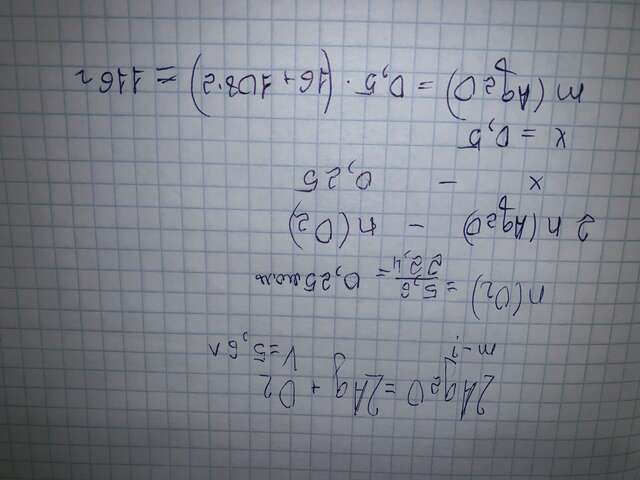 2Ag2O = 2Ag + O2
m-? V=5,6л
n(O2) = 5,6/22,4 = 0,25моль
2 n(Ag2O) - n(O2)
x - 0,25
x = 0,5
m(Ag2O) = 0,5 · (16+108·2) = 116г